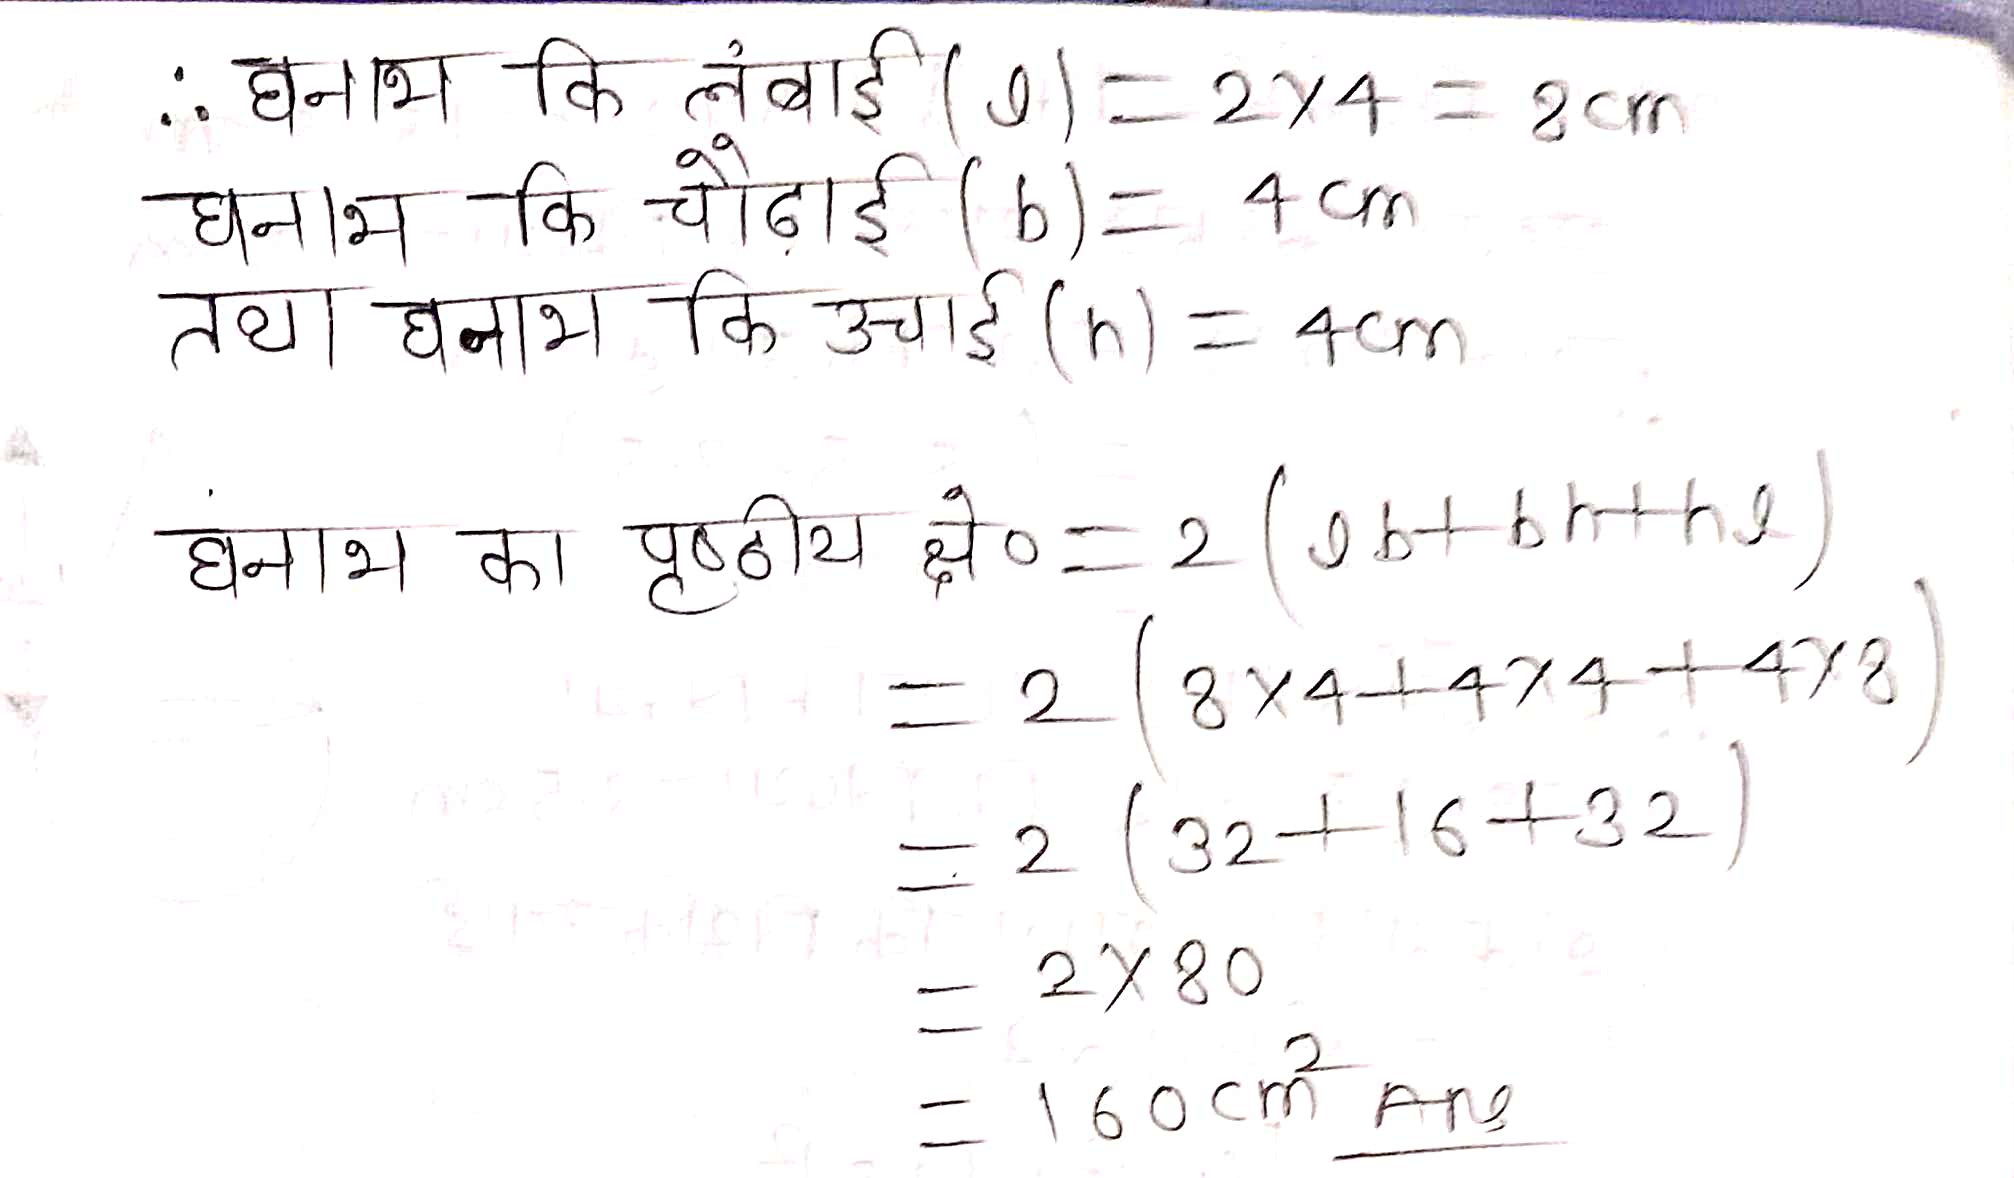 ∴ घनाभ कि लंबाई (l) = 2×4 = 8cm
घनाभ कि चौढ़ाई (b) = 4 cm
तथा घनाभ कि उचाई (h) = 4cm
घंनाभ का पृष्ठीय क्षे० = 2 (lb+bh+hl)
= 2 (8×4+4×4+4×8)
= 2 (32+16+32)
= 2×80
= 160cm² Ans